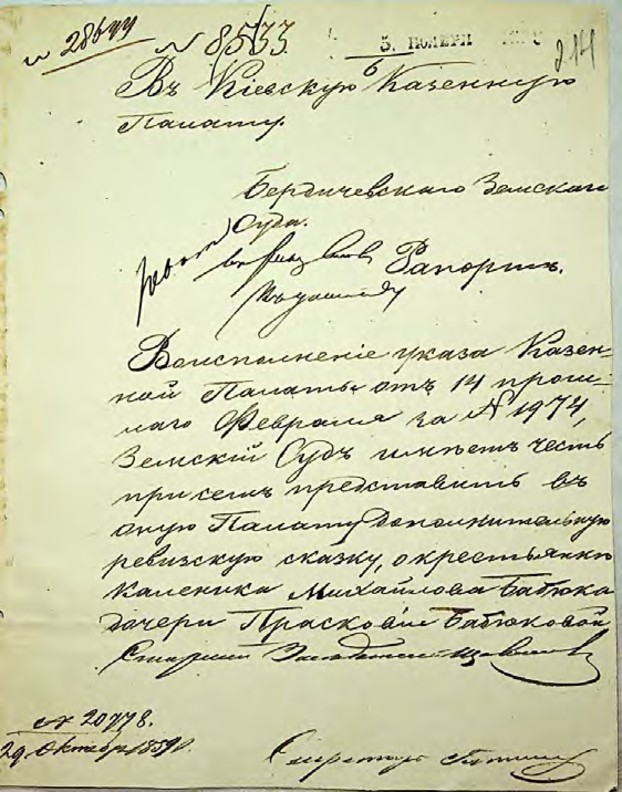 № 8533
5 НОЯБРЯ
Въ Кіевскую Казенную
Палату.
Бердичевскаго Земскаго
Суда.
Рапортъ.
Воисполненіе указа Казен-
ной Палаты отъ 14 прош-
лаго Февраля за № 1974,
Земскій Судъ имѣетъ честь
при семъ представить въ
оную Палату дополнительную
ревизскую сказку, о крестьянкѣ
Каленика Михайлова Бабюка
дочери Прасковіи Бабюковой
Старшій
№ 20778.
29 Октября 1859 г.
Секретарь